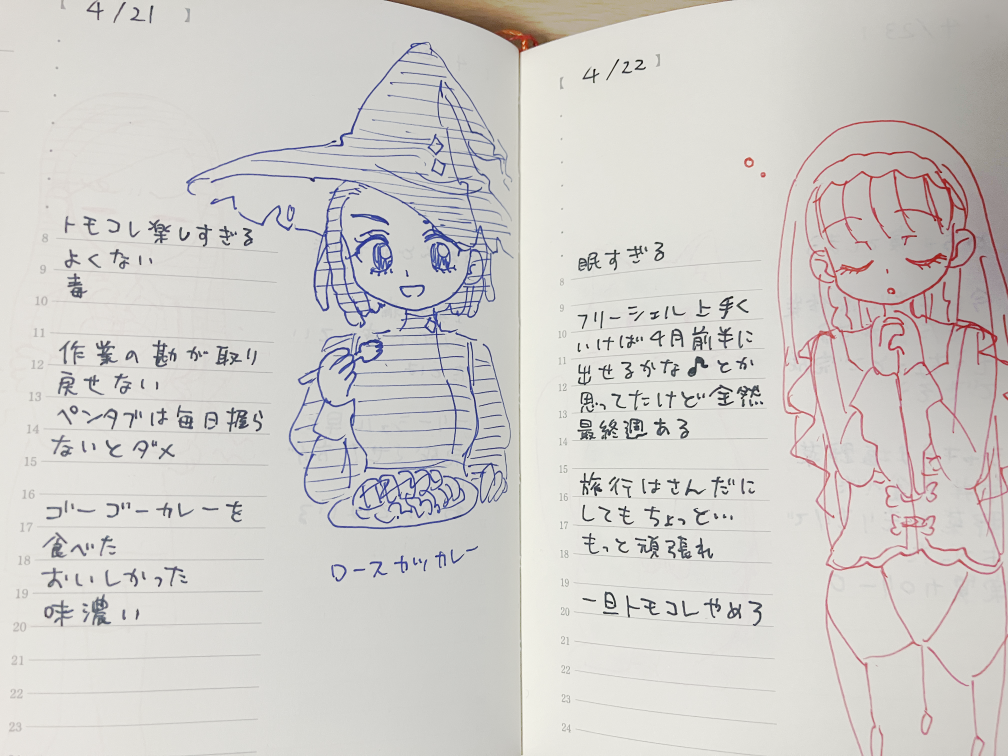 【 4/21 】
トモコレ楽しすぎる
よくない
毒
作業の勘が取り
戻せない
ペンタブは毎日握ら
ないとダメ
ゴーゴーカレーを
食べた
おいしかった
味濃い
8
9
10
11
12
13
14
15
16
17
18
19
20
21
22
23
ロースカツカレー
【 4/22 】
眠すぎる
フリーシェル上手く
いけば4月前半に
出せるかな♪とか
思ってたけど全然
最終週ある
旅行はさんだに
してもちょっと…
もっと頑張れ
一旦トモコレやめろ
8
9
10
11
12
13
14
15
16
17
18
19
20
21
22
23
24